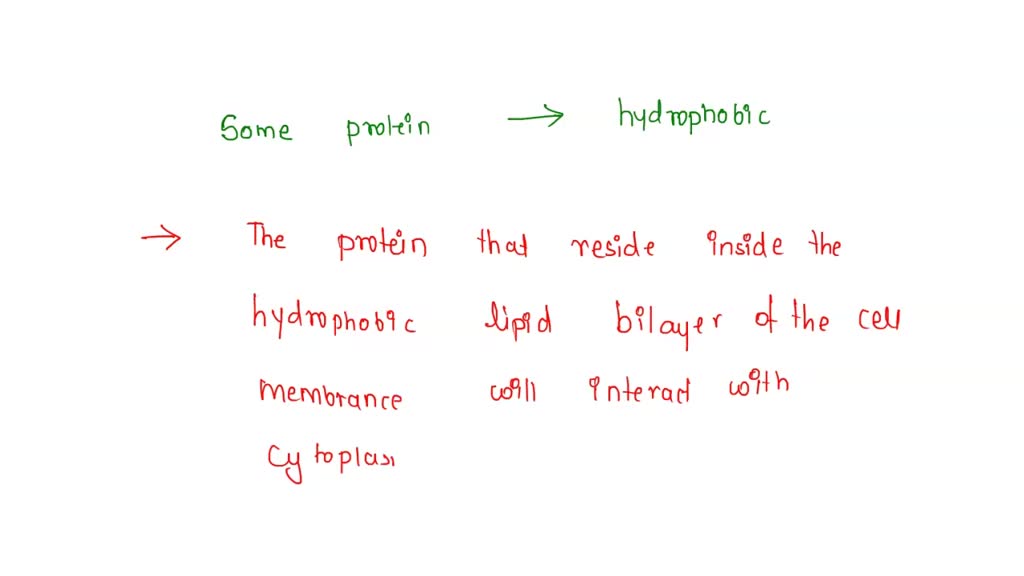 Some protein → hydrophobic
→ The protein that reside inside the
hydrophobic lipid bilayer of the cell
membrance will interact with
Cytoplas